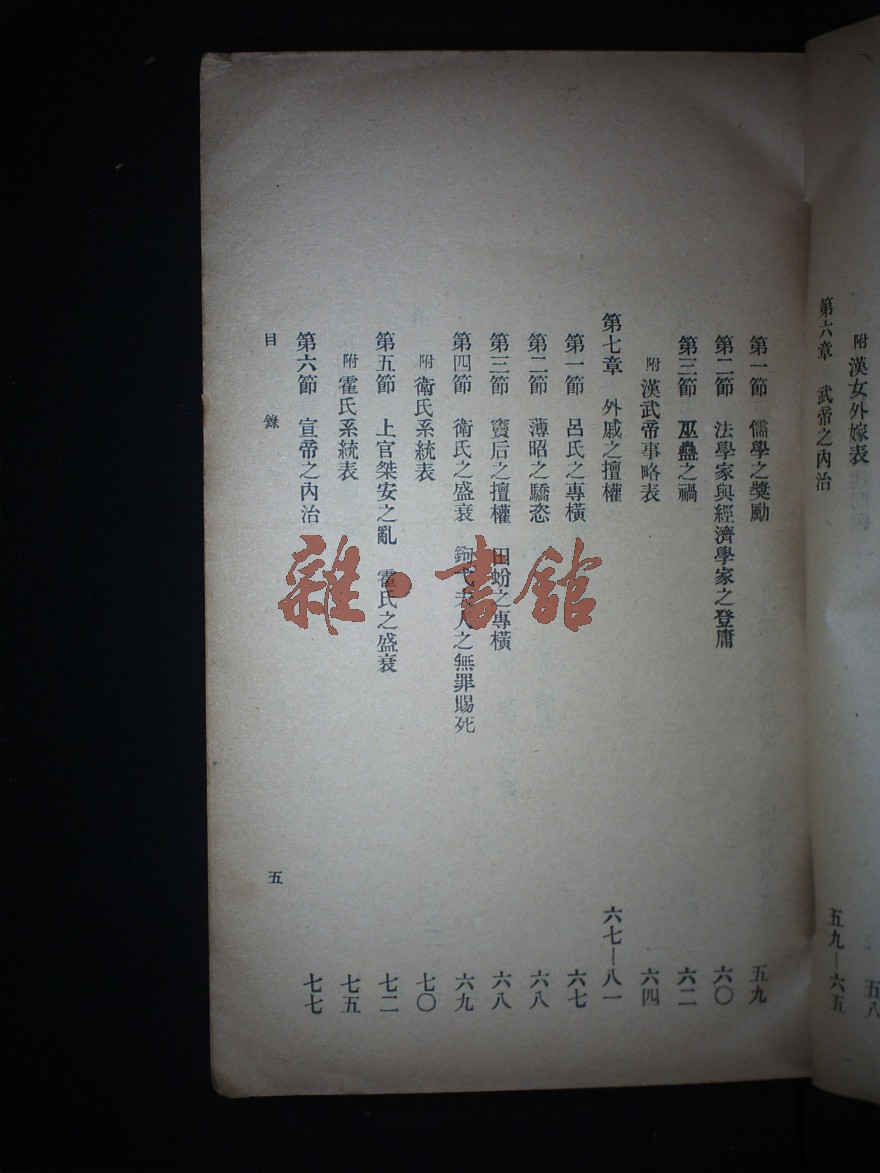 附 漢女外嫁表 五八
第六章 武帝之內治 五九—六五
第一節 儒學之獎勵 五九
第二節 法學家與經濟學家之登庸 六〇
第三節 巫蠱之禍 六二
附 漢武帝事略表 六四
第七章 外戚之擅權 六七—八一
第一節 呂氏之專橫 六七
第二節 薄昭之驕恣 六八
第三節 竇后之擅權 田蚡之專橫 六八
第四節 衛氏之盛衰 鉤弋夫人之無罪賜死 六九
附 衛氏系統表 七〇
第五節 上官桀安之亂 霍氏之盛衰 七二
附 霍氏系統表 七五
第六節 宣帝之內治 七七
目錄 五
雜·書館